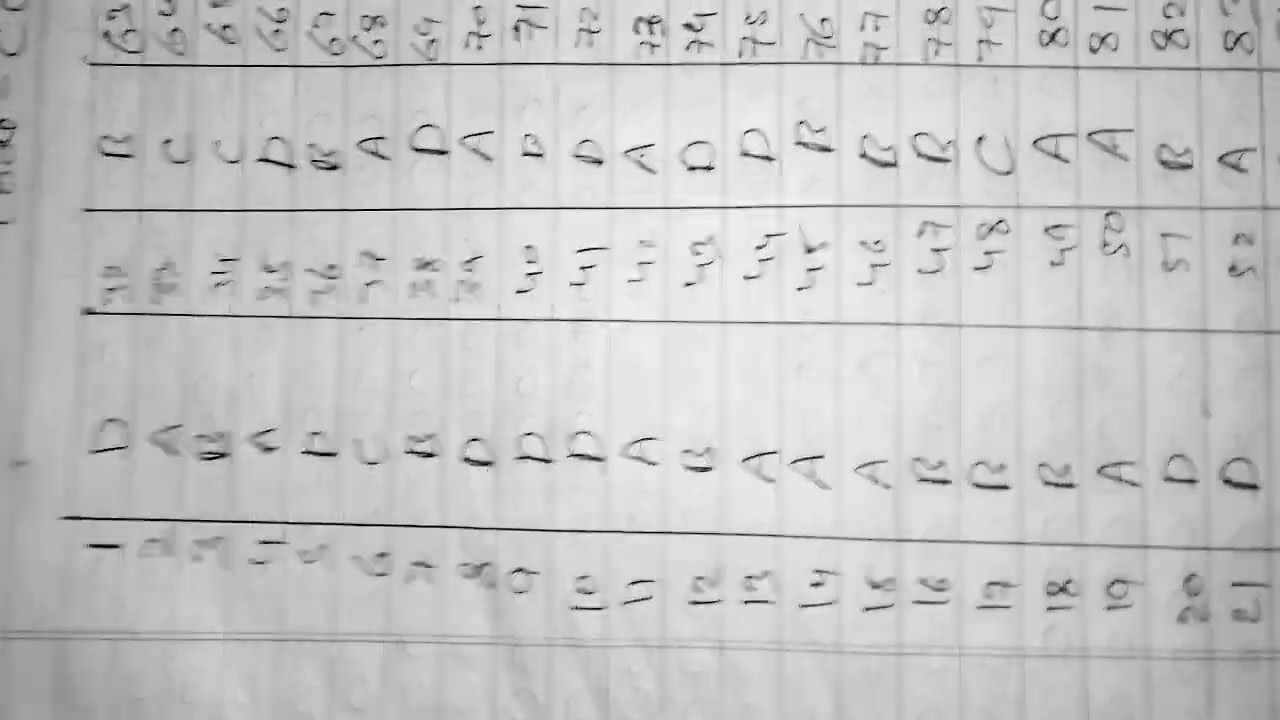 1 D 32 B 63
2 A 33 C 64
3 B 34 C 65
4 A 35 D 66
5 D 36 B 67
6 C 37 A 68
7 B 38 D 69
8 D 39 A 70
9 D 40 D 71
10 D 41 D 72
11 A 42 A 73
12 B 43 D 74
13 A 44 D 75
14 A 45 B 76
15 A 46 B 77
16 B 47 B 78
17 B 48 C 79
18 B 49 A 80
19 A 50 A 81
20 D 51 B 82
21 D 52 A 83